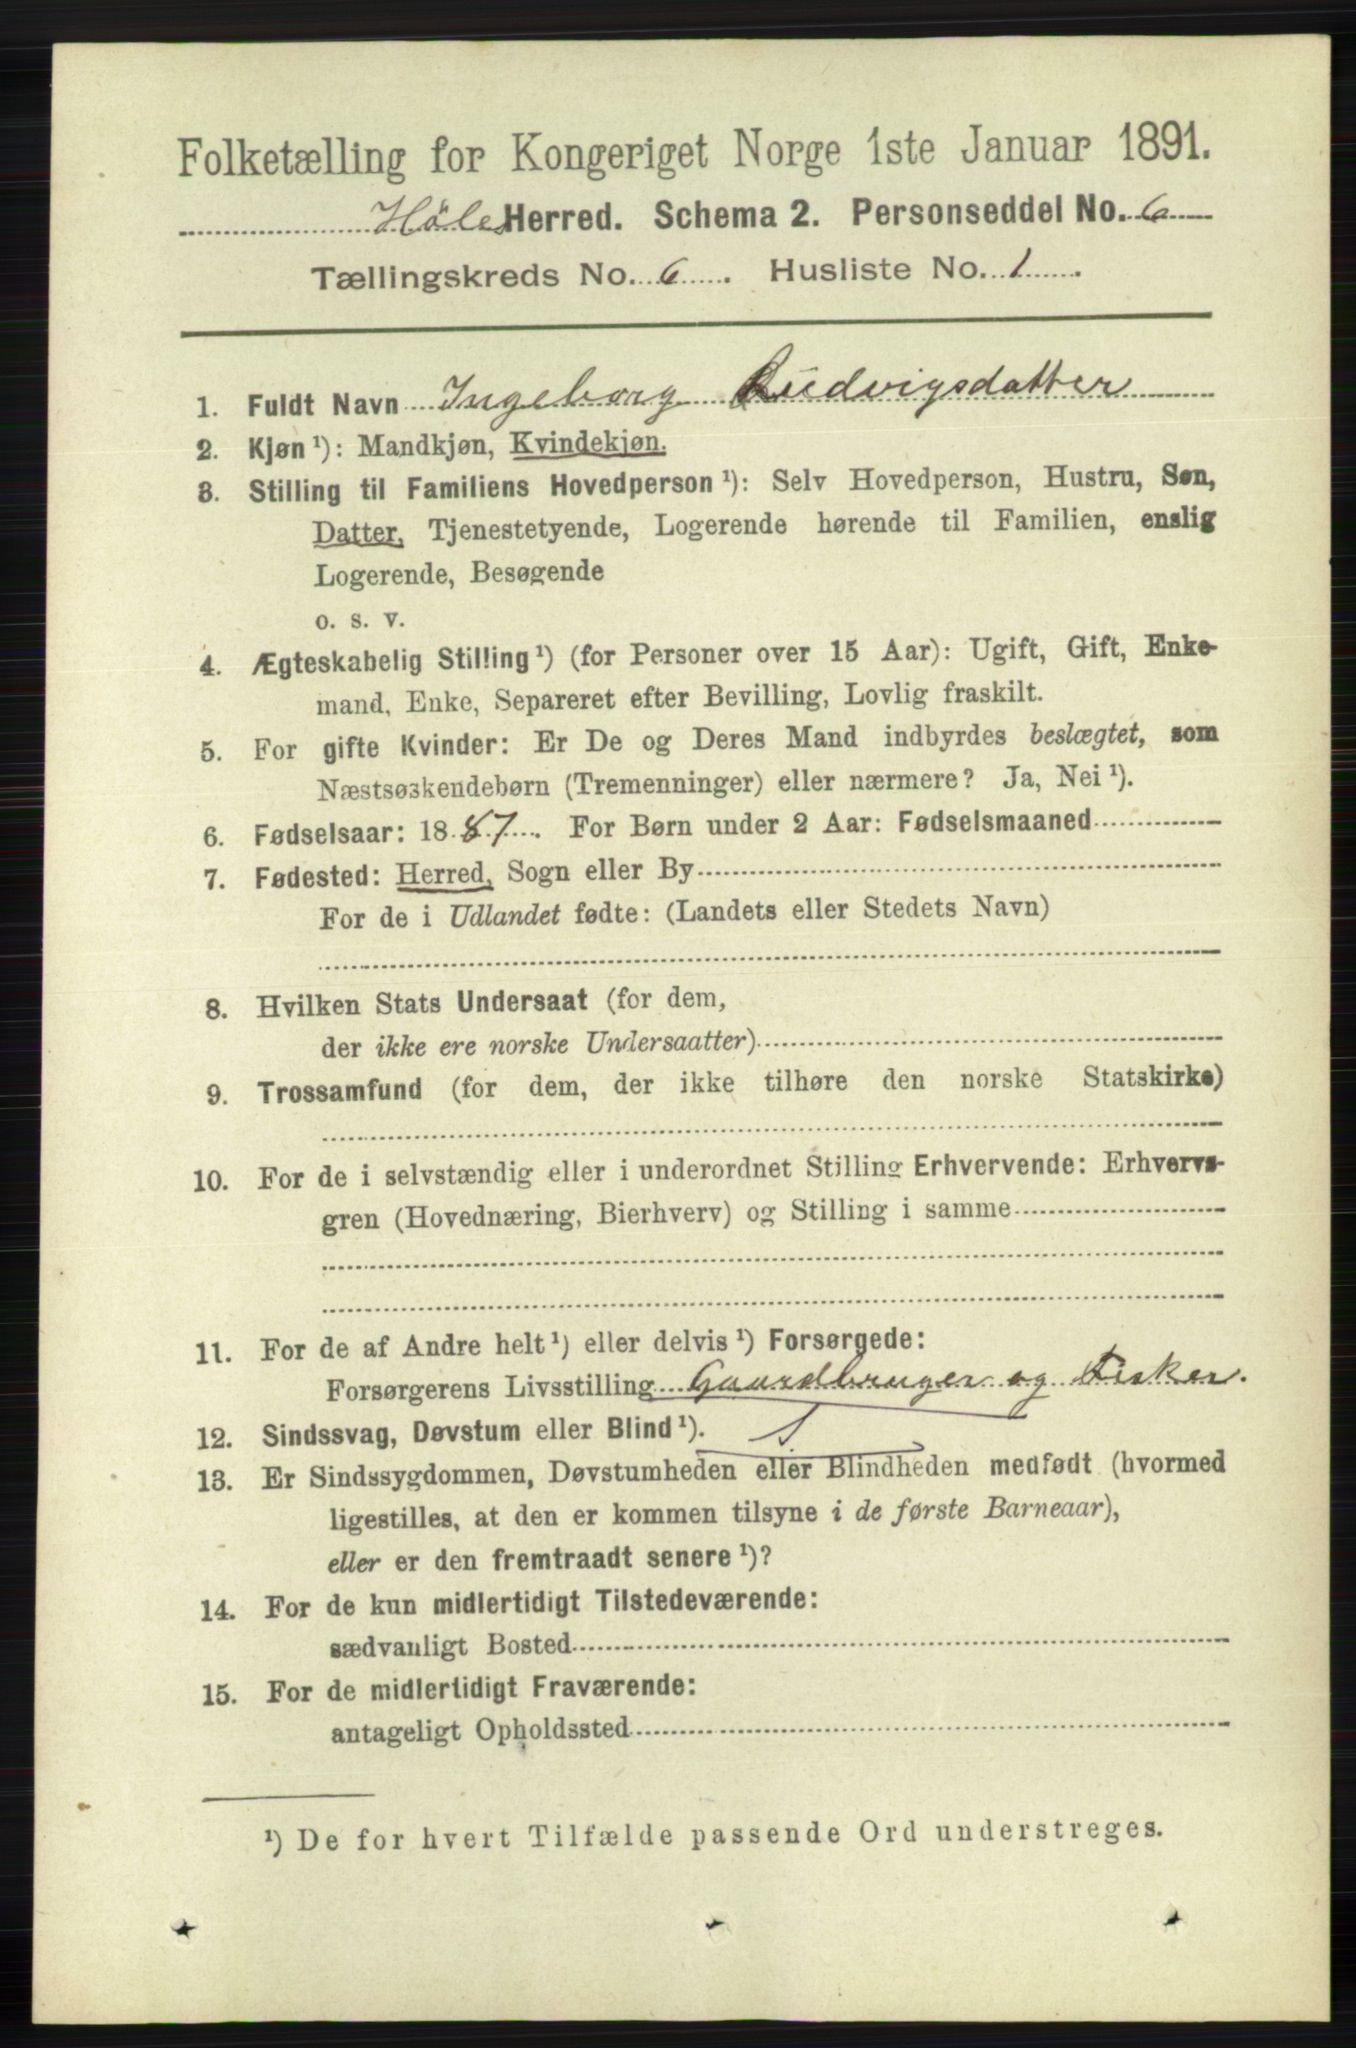 Folketælling for Kongeriget Norge 1ste Januar 1891.
Höles Herred. Schema 2. Personseddel No. 6
Tællingskreds No. 6. Husliste No. 1.
1. Fuldt Navn Ingeborg Ludvigsdatter
2. Kjøn ¹): Mandkjøn, Kvindekjøn.
3. Stilling til Familiens Hovedperson ¹): Selv Hovedperson, Hustru, Søn,
Datter, Tjenestetyende, Logerende hørende til Familien, enslig
Logerende, Besøgende
o. s. v.
4. Ægteskabelig Stilling ¹) (for Personer over 15 Aar): Ugift, Gift, Enke-
mand, Enke, Separeret efter Bevilling, Lovlig fraskilt.
5. For gifte Kvinder: Er De og Deres Mand indbyrdes beslægtet, som
Næstsøskendebørn (Tremenninger) eller nærmere? Ja, Nei ¹).
6. Fødselsaar: 1887. For Børn under 2 Aar: Fødselsmaaned
7. Fødested: Herred, Sogn eller By
For de i Udlandet fødte: (Landets eller Stedets Navn)
8. Hvilken Stats Undersaat (for dem,
der ikke ere norske Undersaatter)
9. Trossamfund (for dem, der ikke tilhøre den norske Statskirke)
10. For de i selvstændig eller i underordnet Stilling Erhvervende: Erhvervs-
gren (Hovednæring, Bierhverv) og Stilling i samme
11. For de af Andre helt ¹) eller delvis ¹) Forsørgede:
Forsørgerens Livsstilling Gaardbruger og Fisker.
12. Sindssvag, Døvstum eller Blind ¹).
13. Er Sindssygdommen, Døvstumheden eller Blindheden medfødt (hvormed
ligestilles, at den er kommen tilsyne i de første Barneaar),
eller er den fremtraadt senere ¹)?
14. For de kun midlertidigt Tilstedeværende:
sædvanligt Bosted
15. For de midlertidigt Fraværende:
antageligt Opholdssted
¹) De for hvert Tilfælde passende Ord understreges.